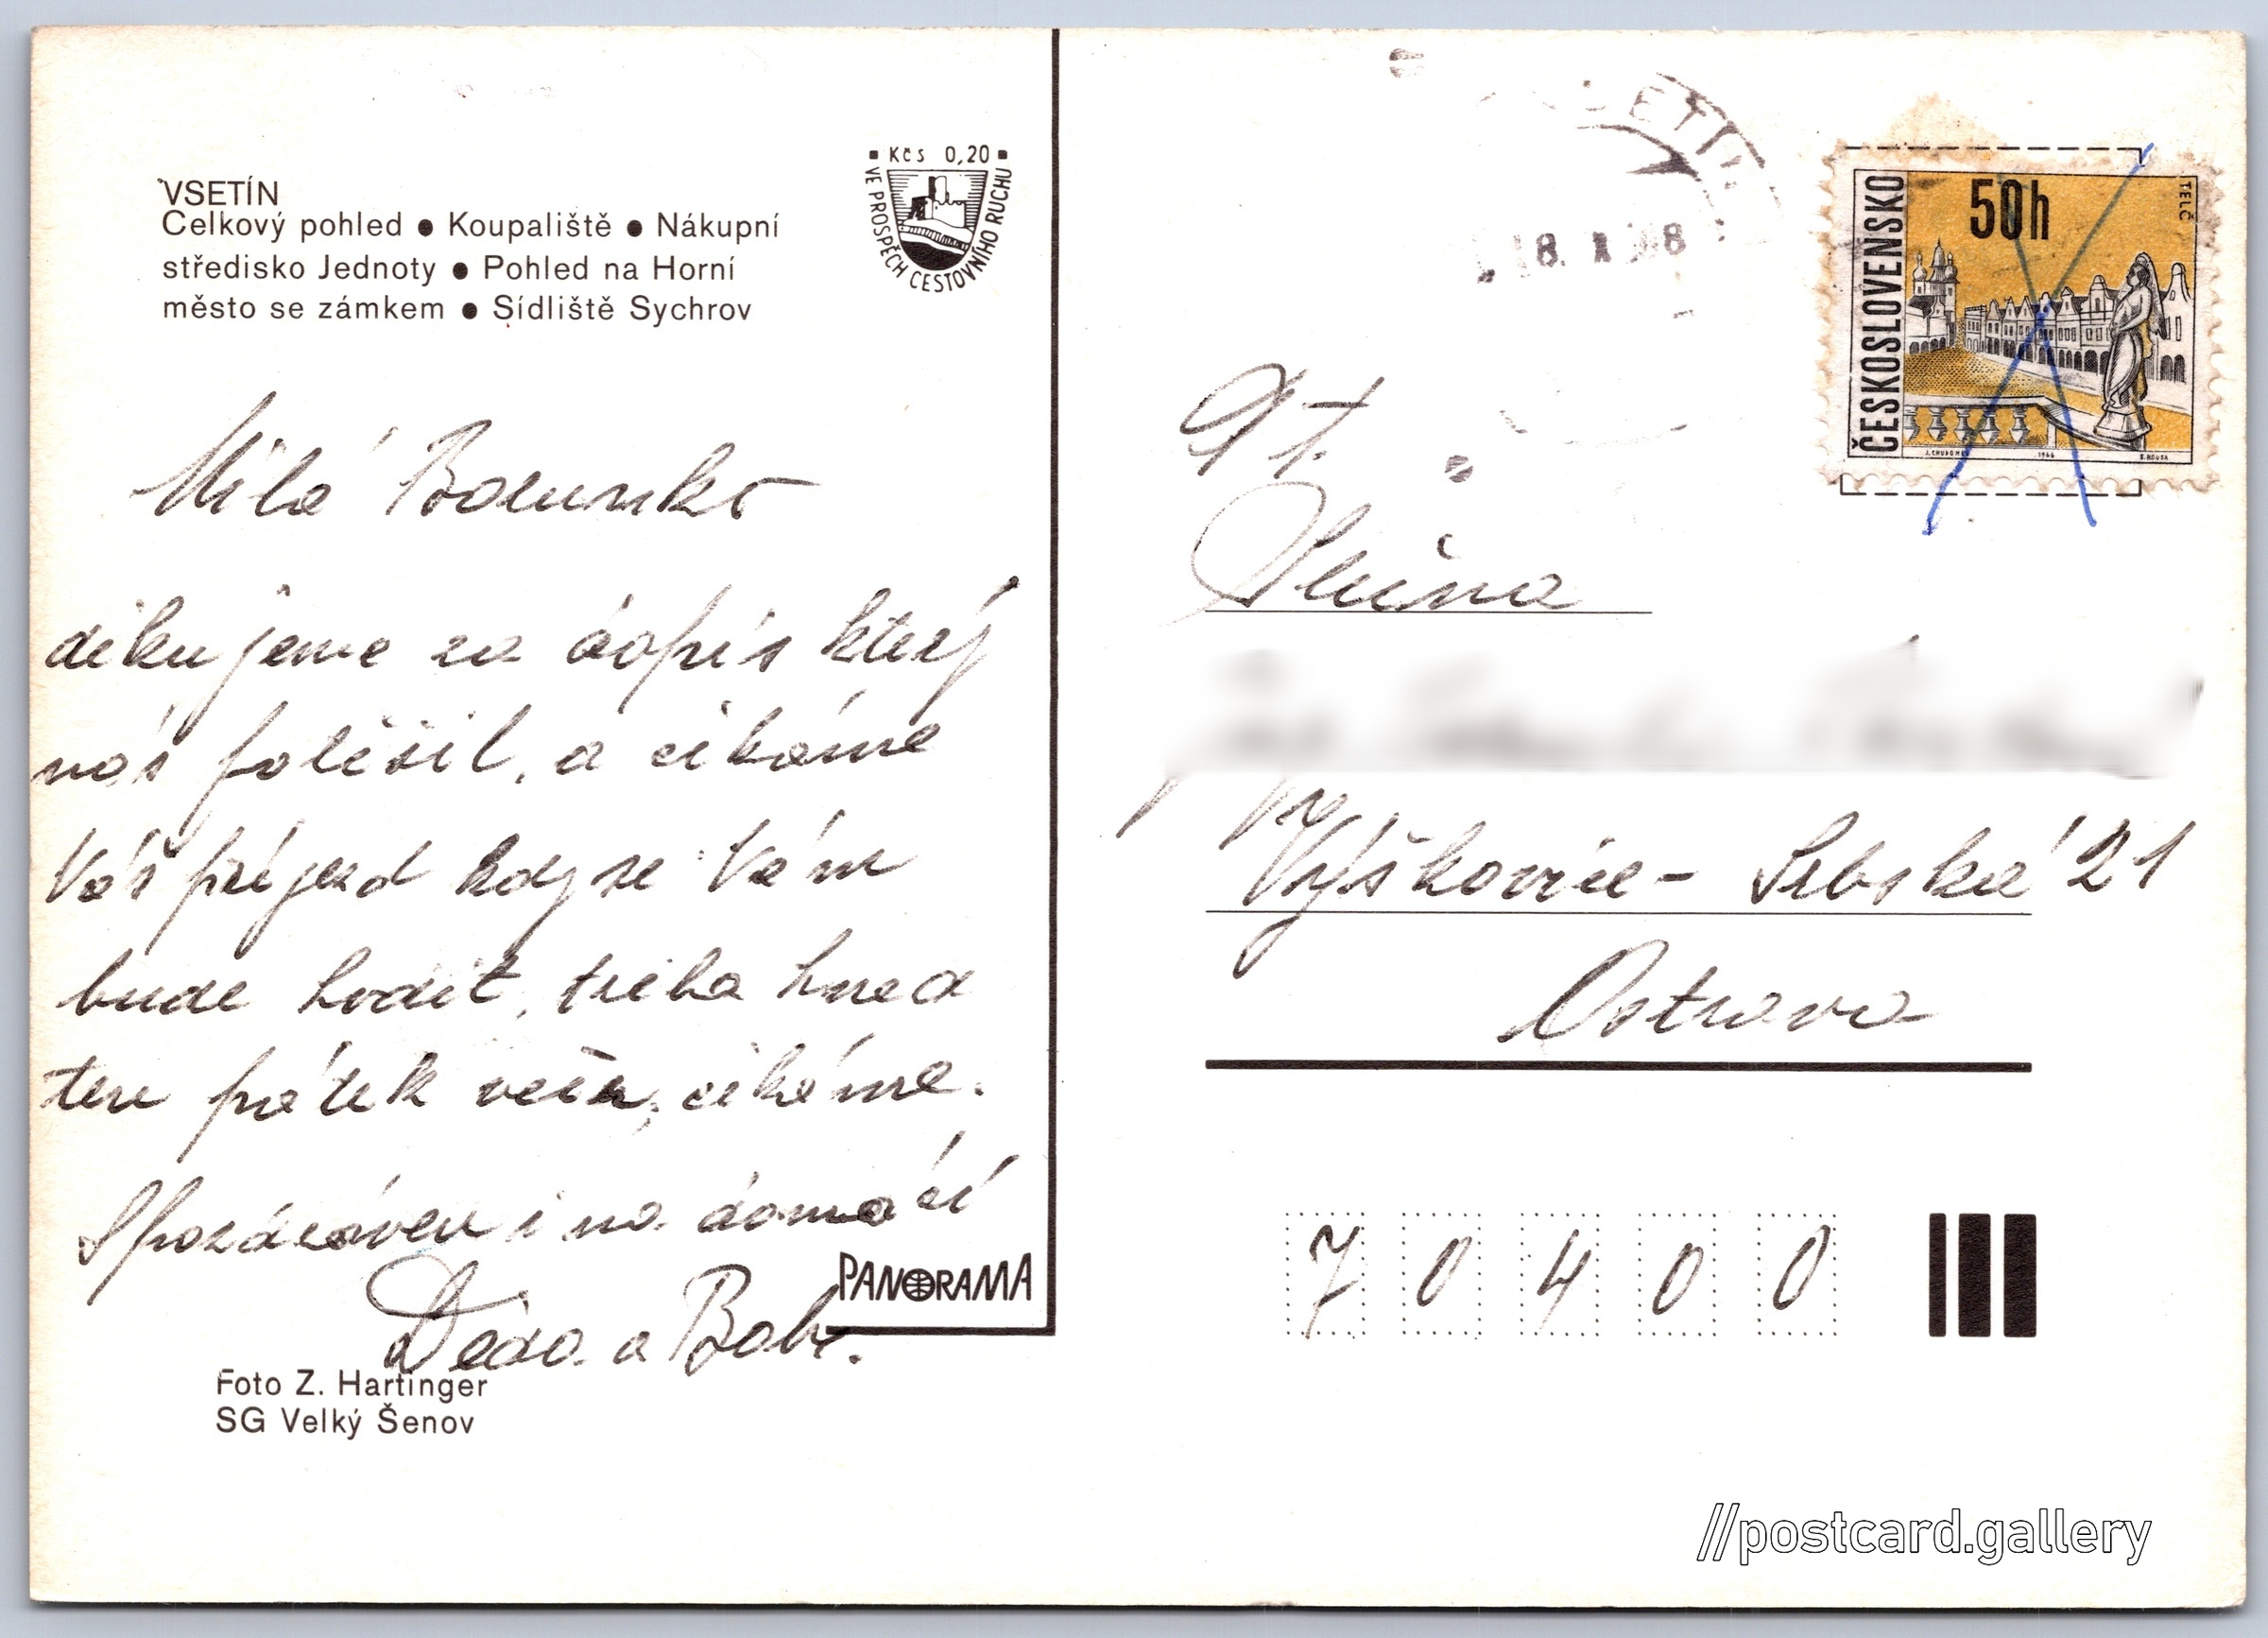 VSETÍN
Celkový pohled ● Koupaliště ● Nákupní
středisko Jednoty ● Pohled na Horní
město se zámkem ● Sídliště Sychrov
Kčs 0,20
VE PROSPĚCH CESTOVNÍHO RUCHU
Milá
děkujeme za dopis který
nás potěšil, a čekáme
Váš příjezd kdy se Vám
bude hodit, třeba hned
ten pátek večer, čekáme.
S pozdravem i na domácí
Děda a Bab.
PANORAMA
Foto Z. Hartinger
SG Velký Šenov
ČESKOSLOVENSKO
50h
TELČ
J. CHUDOMEL
1966
Vt.
Výškovice - Srbská 21
Ostrava
7 0 4 0 0
//postcard.gallery